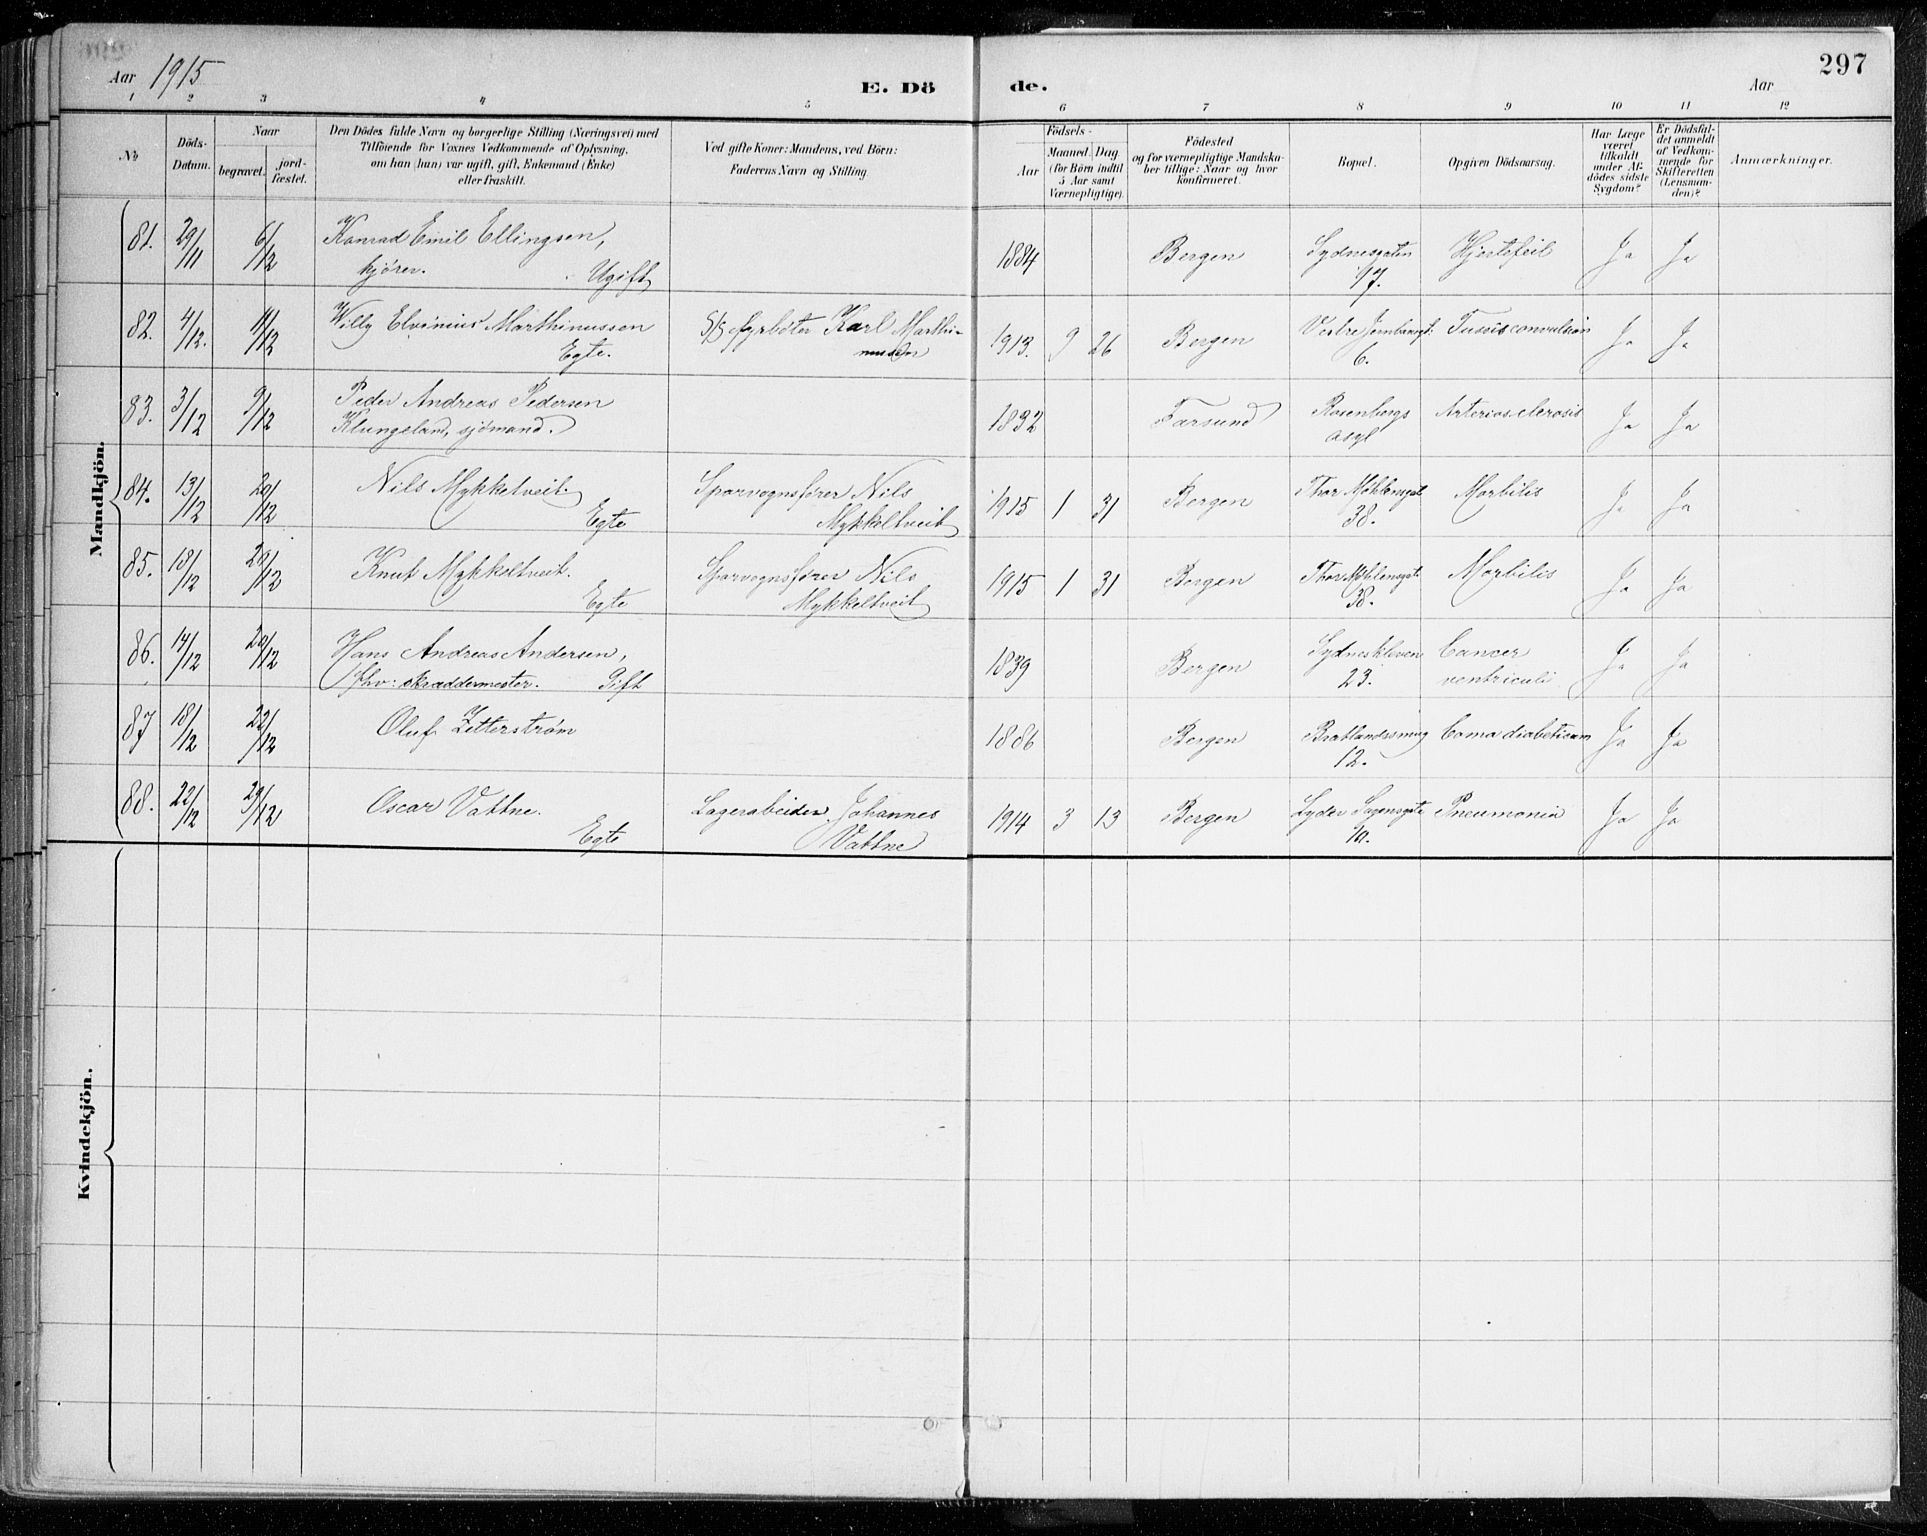 297
Aar 1915
E. Dö
de.
Aar
1 2 3 4 5 6 7 8 9 10 11 12
No
Döds-
Datum.
Naar
begravet.
jord-
fæstet.
Den Dödes fulde Navn og borgerlige Stilling (Næringsvei) med
Tilföiende for Voxnes Vedkommende af Oplysning,
om han (hun) var ugift, gift, Enkemand (Enke)
eller fraskilt.
Ved gifte Koner: Mandens, ved Börn:
Faderens Navn og Stilling.
Födsels-
Aar
Maaned. Dag
(for Börn indtil
5 Aar samt
Værnepligtige).
Födested
og for værnepligtige Mandska-
ber tillige: Naar og hvor
konfirmeret.
Bopæl.
Opgiven Dödsaarsag.
Har Læge
været
tilkaldt
under Af-
dödes sidste
Sygdom?
Er Dödsfal-
det anmeldt
af Vedkom-
mende for
Skifteretten
(Lensman-
den)?
Anmærkninger.
Mandkjön.
81. 29/11 6/12 Konrad Emil Ellingsen, 1884 Bergen Sydnesgaten Hjertefeil Ja Ja
kjører. Ugift 17.
82. 4/12. 11/12 Willy Elvinius Marthinussen S/S fyrbøter Karl Marthi- 1913. 9 26 Bergen Vestre Ja Ja
Egte. nussen 6.
83. 3/12 9/12 Peder Andreas Pedersen 1832 Farsund Rosenbergs Arteriosclerosis Ja Ja
Klungeland, sjömand. asyl
84. 13/12 20/12 Nils Mykkeltveit. Sporvognsfører Nils 1915 1 31 Bergen Thor Møhlensgt. Morbilis Ja Ja
Egte Mykkeltveit 38.
85. 18/12 20/12 Knut Mykkeltveit. Sporvognsfører Nils 1915 1 31 Bergen Thor Møhlensgt. Morbilis Ja Ja
Egte Mykkeltveit 38.
86. 14/12 20/12 Hans Andreas Andersen, 1839 Bergen Sydneskleven Cancer Ja Ja
fhv: skræddermester. Gift 23. ventriculi
87 18/12 22/12 Oluf Zetterstrøm 1886 Bergen 12. Coma diabeticum Ja Ja
88. 22/12 29/12 Oscar Vattne. Lagerarbeider Johannes 1914 3 13 Bergen Lyder Sagensgate Pneumonia Ja Ja
Egte Vattne
Kvindekjön.